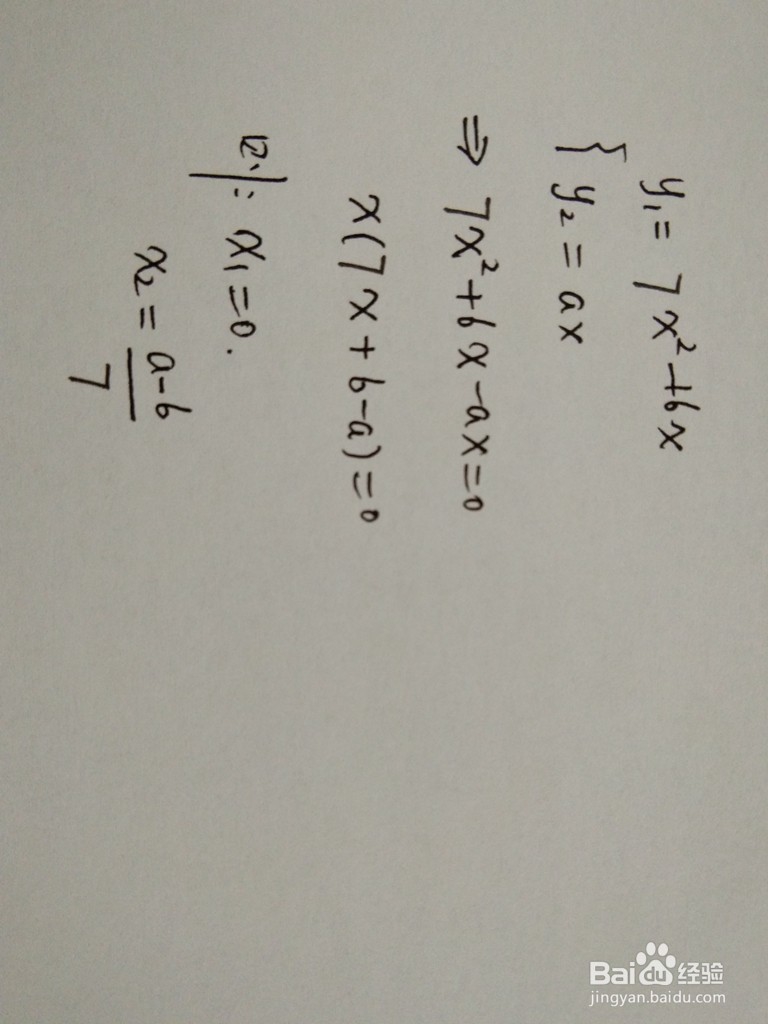 y₁ = 7x²+6x
{ y₂ = ax
⇒ 7x²+6x-ax=0
x(7x+6-a)=0
则: x₁=0.
x₂ = (a-6)/7
Baidu经验
jingyan.baidu.com